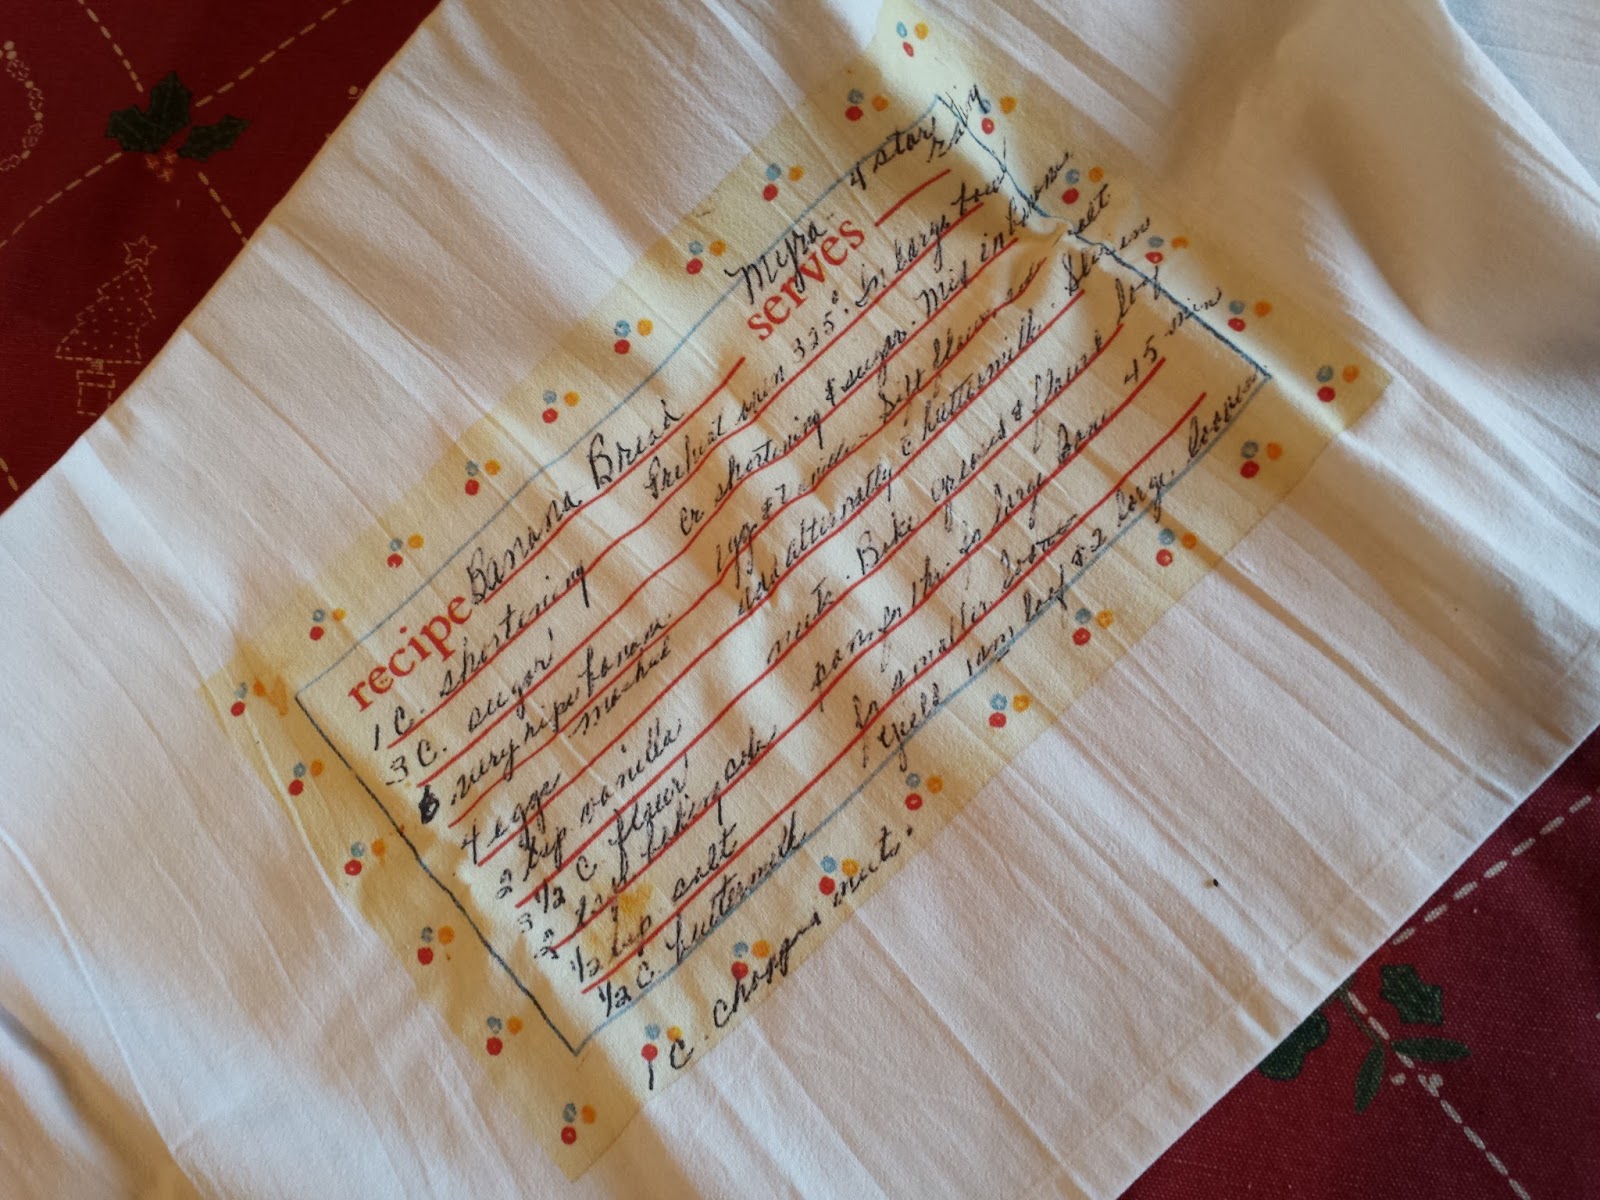 Myra 4 star rating
recipe Banana Bread serves
1 C. shortening
3 C. sugar
6 very ripe banana
mashed
4 eggs
2 tsp vanilla
3 1/2 C. flour
2 tsp. baking soda
1/2 tsp salt
1/2 C. buttermilk
1 C. chopped nuts.
Preheat oven 325°. In large bowl
cr shortening & sugar. Mix in banana
egg & vanilla. Sift flour, soda salt.
add alternatly c buttermilk. Stir in
nuts. Bake greased & flourd loaf
pans for 1 hr. for large pans 45 min
for smaller
Yield 1 sm loaf & 2 large loaves